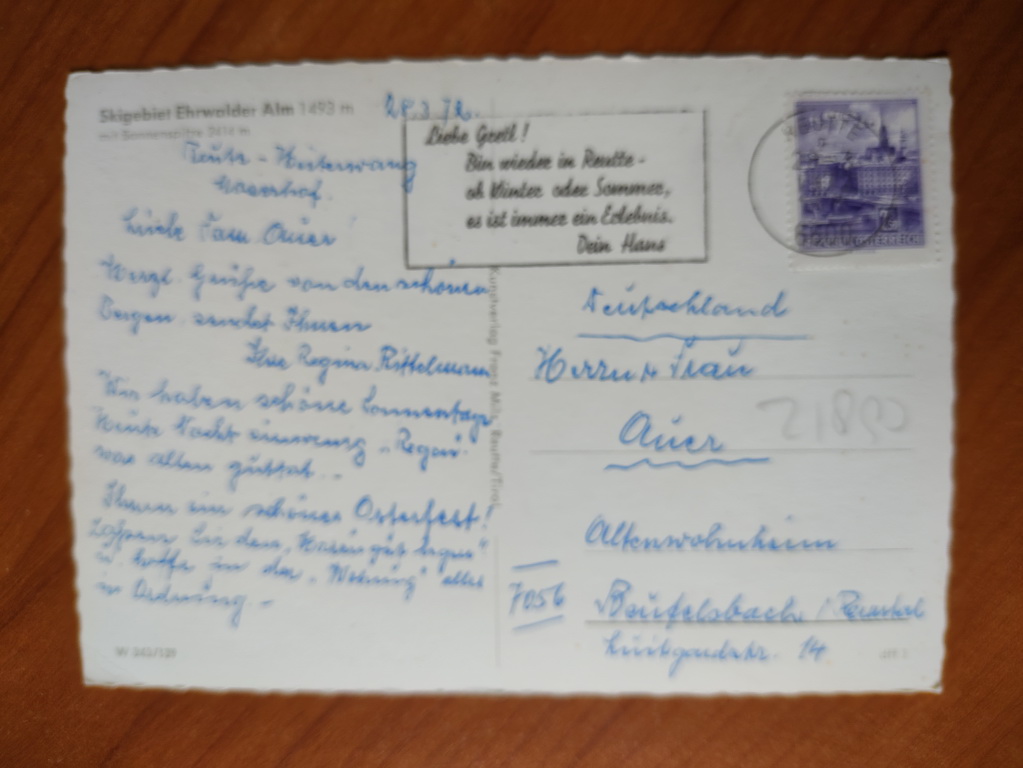 Skigebiet Ehrwalder Alm 1493 m
mit Sonnenspitze 2414 m
28.3.72.
Reutte - Heiterwang
Liebe Fam Auer!
Herzl. Grüße von den schönen
Bergen sendet Ihnen
Ihre Regina Rittelmann
Wir haben schöne Sonnentage
Heute Nacht einwenig "Regen"
was allen guttat..
Ihnen ein schönes Osterfest!
Lassen Sie den "Hasen gut legen"
u. hoffe in der "Wohnung" alles
in Ordnung -
W 243/129
Liebe Gretl!
Bin wieder in Reutte -
ob Winter oder Sommer,
es ist immer ein Erlebnis.
Dein Hans
Kunstverlag Franz Milz, Reutte/Tirol
Deutschland
Herrn + Frau
Auer
21890
Altenwohnheim
7056 Beutelsbach / Remstal
14